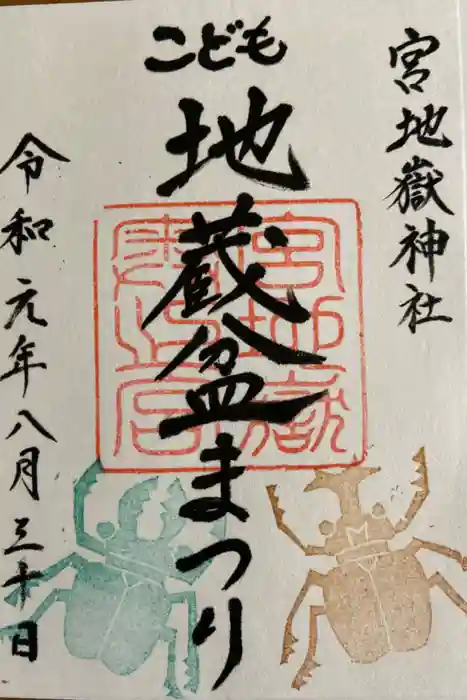 宮地嶽神社
こども
地蔵盆まつり
令和元年八月三十日